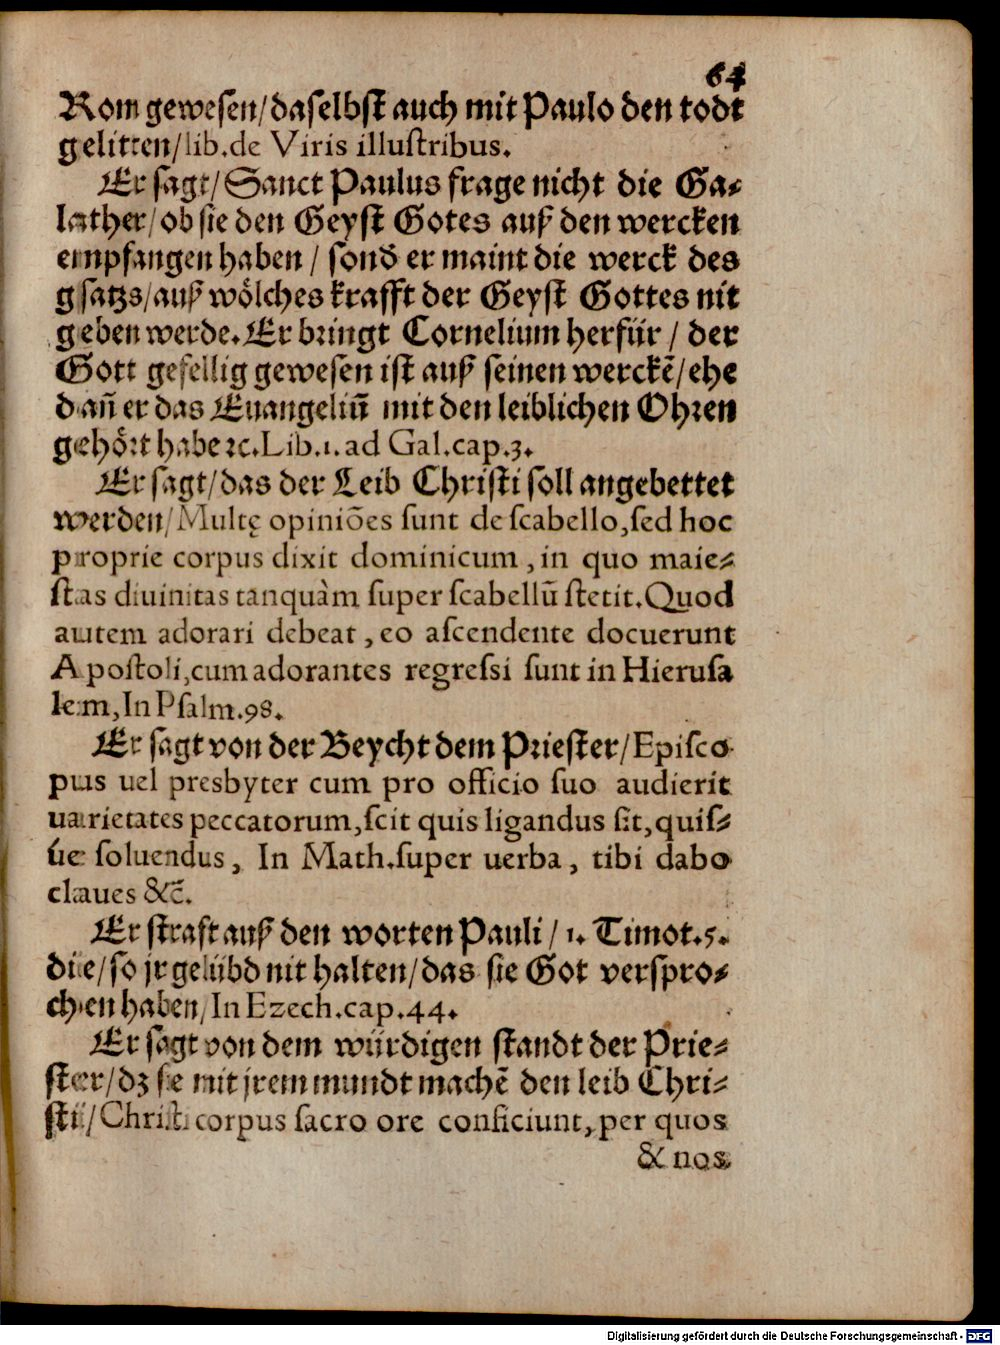 64
Rom gewesen/daselbst auch mit Paulo den todt
gelitten/lib.de Viris illustribus.
Er sagt/Sanct Paulus frage nicht die Ga⸗
lather/ob sie den Geyst Gotes auß den wercken
empfangen haben / sonď er maint die werck des
gsatzs/auß wölches krafft der Geyst Gottes nit
geben werde. Er bringt Cornelium herfür / der
Gott gefellig gewesen ist auß seinen werckē/ehe
dañ er das Euangeliū mit den leiblichen Ohren
gehört habe ꝛc. Lib.1. ad Gal.cap.3.
Er sagt/das der Leib Christi soll angebettet
werden/Multę opiniōes sunt de scabello,sed hoc
proprie corpus dixit dominicum, in quo maie⸗
stas diuinitas tanquàm super scabellū stetit.Quod
autem adorari debeat, eo ascendente docuerunt
Apostoli,cum adorantes regressi sunt in Hierusa
lem,In Psalm.98.
Er sagt von der Beycht dem Priester/Episco
pus uel presbyter cum pro officio suo audierit
uarietates peccatorum,scit quis ligandus sit,quis⸗
ue soluendus, In Math.super uerba, tibi dabo
claues &c̄.
Er straft auß den worten Pauli / 1. Timot.5.
die/so jr gelübd nit halten/das sie Got verspro⸗
chen haben/In Ezech.cap.44.
Er sagt von dem würdigen standt der Prie⸗
ster/dz sie mit jrem mundt machē den leib Chri⸗
sti/Christi corpus sacro ore conficiunt, per quos
& nos
Digitalisierung gefördert durch die Deutsche Forschungsgemeinschaft - DFG